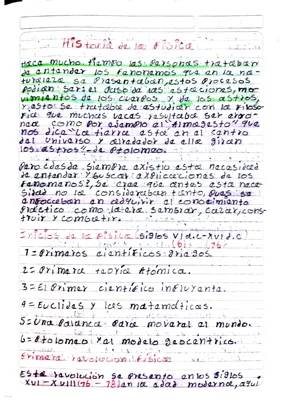 Historia de la Física
Hace mucho tiempo las personas trataban
de entender los fenomenos que en la na-
turaleza se presentaban, estos procesos
podian ser: el paso de las estaciones, mo-
vimientos de los cuerpos y de los astros,
esto se trataba de estudiar con la filoso-
fia que muchas veces resultaba ser erro-
nea como por ejemplo el "Almagesto" que
nos dice "La tierra esta en el centro
del universo y alrededor de ella giran
los astros" de Ptolomeo.
Pero desde siempre existio esta necesidad
de entender y buscar explicaciones de los
fenomenos, se cree que antes esta nece-
sidad no la consideraban tanto, pues se
enfocaban en adquirir el conocimiento
practico como lo era sembrar, cazar, cons-
truir y combatir.
Inicios de la Física (siglos VI a.C-XVI d.C)
1= Primeros científicos griegos.
2= Primera teoria Atómica.
3= El Primer cientifico influyente.
4= Euclides y las matemáticas.
5= Una palanca para mover al mundo.
6= Ptolomeo y el modelo geocentrico.
Primera revolucion Fisica
Esta revolución se presento en los siglos
XVI-XVIII (16 - 18) en la edad moderna, aqui